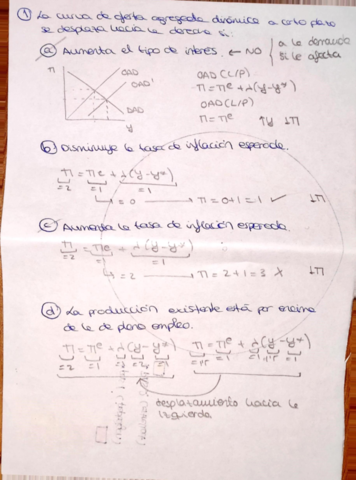 ① La curva de oferta agregada dinámica a corto plazo
se desplaza hacia la derecha si:
ⓐ Aumenta el tipo de interés. ← NO { a la demanda
sí le afecta
π OAD OAD' DAD y
OAD (L/P)
π = πe + λ(y-y*)
OAD (C/P)
π = πe ↑y ↓π
ⓑ Disminuye la tasa de inflación esperada.
π = πe + λ(y-y*)
=2 =1 =1
↳ = 0 → π = 0+1 = 1 ✓ ↓π
ⓒ Aumenta la tasa de inflación esperada.
π = πe + λ(y-y*)
=2 =1 =1
↳ = 2 → π = 2+1 = 3 X ↓π
ⓓ La producción existente está por encima
de la de pleno empleo.
π = πe + λ(y-y*) π = πe + λ(y-y*)
desplazamiento hacia la
izquierda